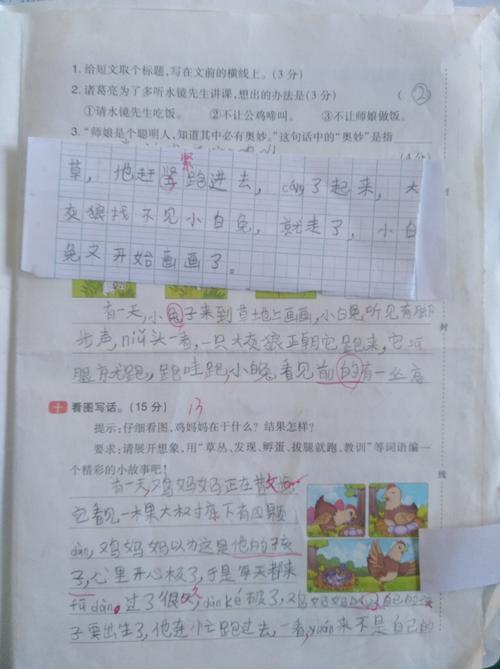 1. 给短文取个标题,写在文前的横线上。(3 分)
2. 诸葛亮为了多听水镜先生讲课,想出的办法是(3 分) ( ② )
①请水镜先生吃饭。 ②不让公鸡啼叫。 ③不让师娘做饭。
3. “师娘是个聪明人,知道其中必有奥妙。”这句话中的“奥妙”是指
(4 分)
紧
草, 他赶 跑进去, cáng了起来, 大
灰狼找不见小白兔, 就走了, 小白
兔又开始画画了。
有一天,小兔子来到草地上画画,小白兔听见有脚
步声,niǔ头一看,一只大灰狼正朝它跑来,它
跑,跑哇跑,小白兔看见前的有一丛高
封
十 看图写话。(15 分) 13
提示:仔细看图,鸡妈妈在干什么? 结果怎样?
要求:请展开想象,用“草丛、发现、孵蛋、拔腿就跑、教训”等词语编一
个精彩的小故事吧!
线
有一天,鸡妈妈正在散
它看见一木果大树 下有四颗
dàn,鸡妈妈以为这是他的孩
子,心里开心极了,于是每天都来
fū dàn。过了很久,dàn ké破了,鸡妈妈 自己的孩
子要出生了,他连忙跑过去,一看,yuán来不是自己的